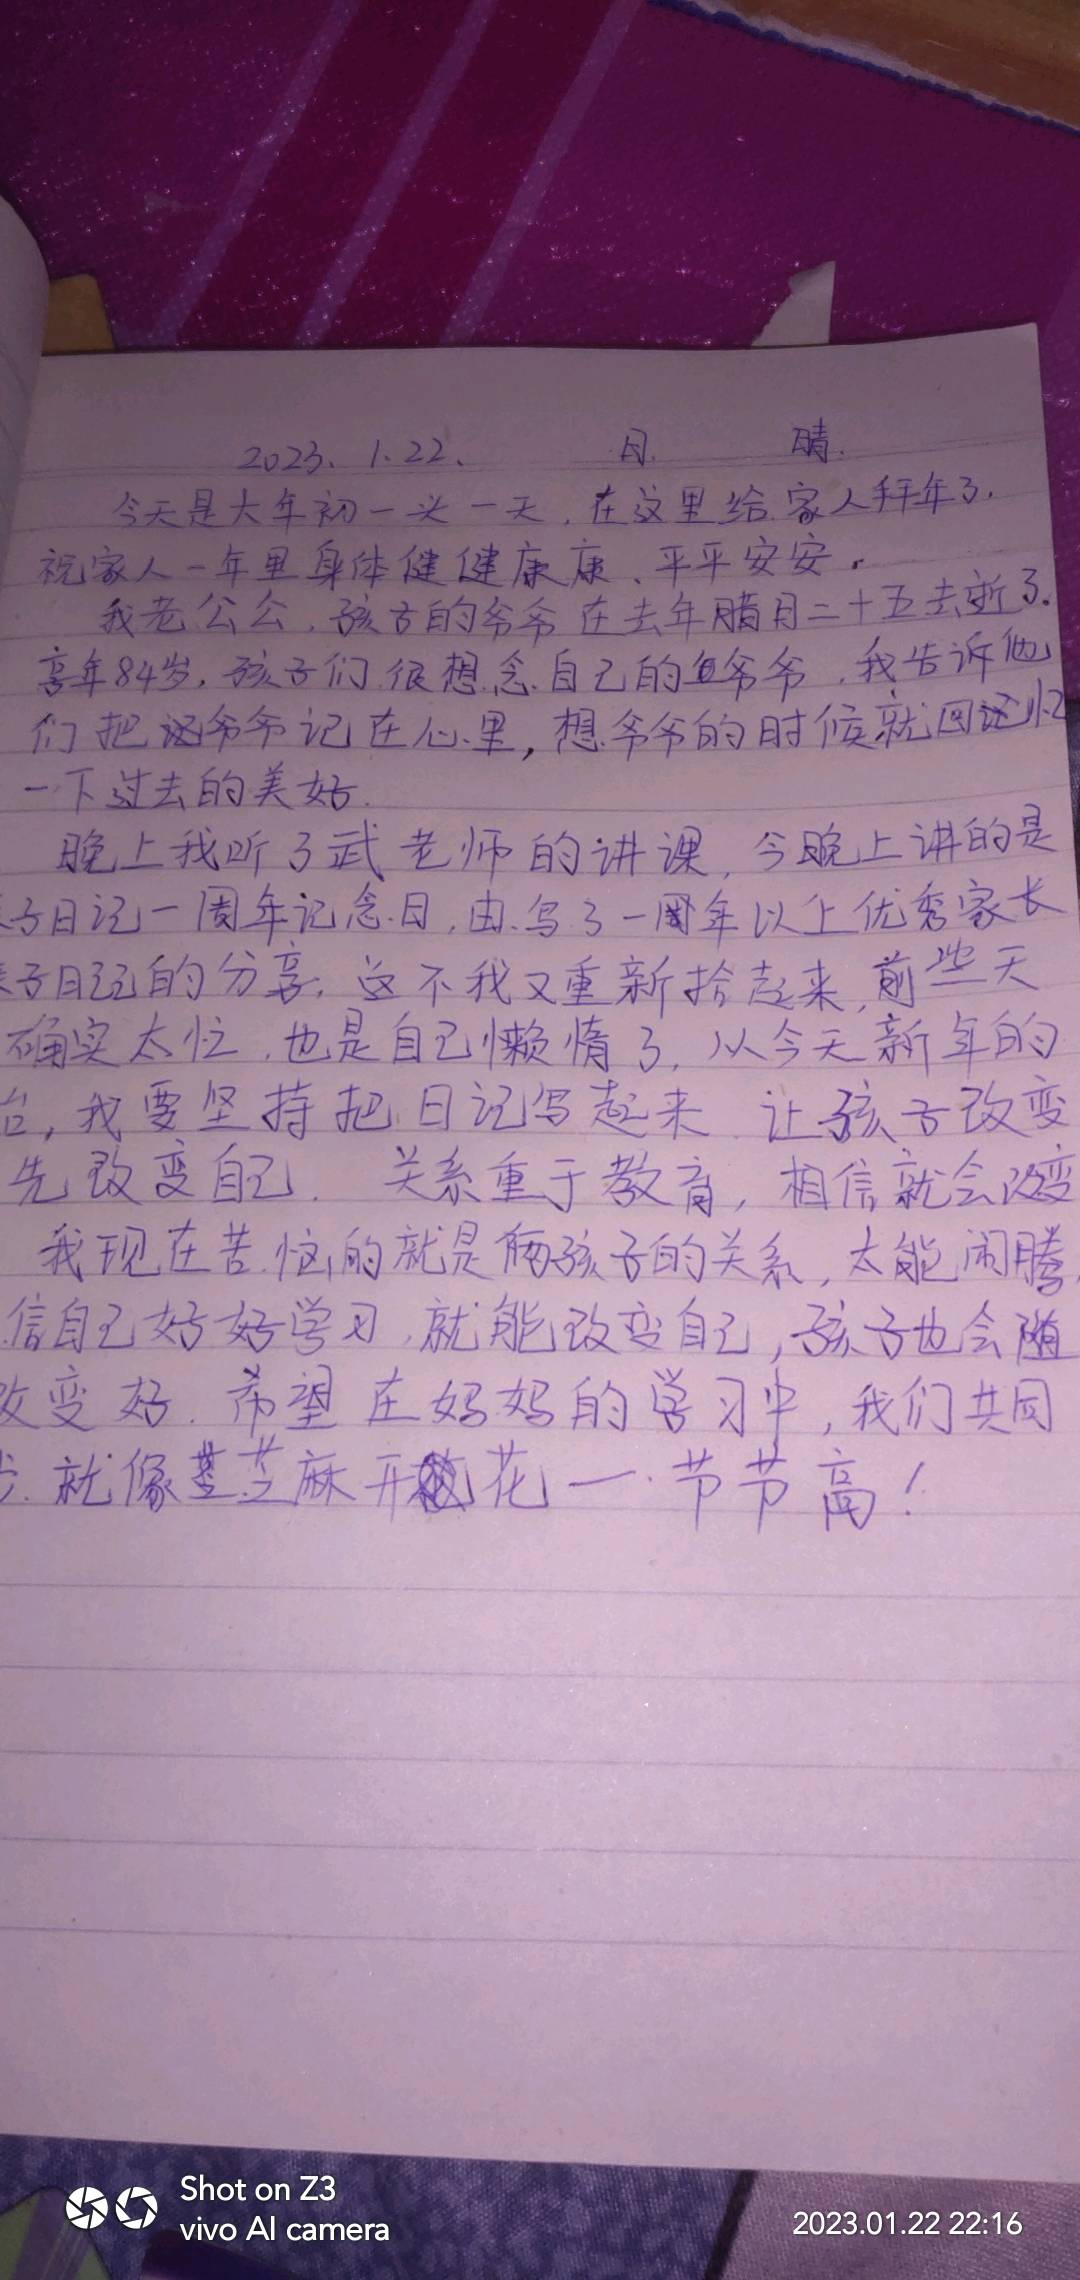 2023、1.22、 日. 晴.
今天是大年初一头一天，在这里给家人拜年了.
祝家人一年里身体健健康康、平平安安.
我老公公，孩子的爷爷在去年腊月二十五去逝了.
享年84岁，孩子们很想念自己的爷爷，我告诉他
们把爷爷记在心里，想爷爷的时候就回忆
一下过去的美好.
晚上我听了武老师的讲课，今晚上讲的是
子日记一周年记念日，由写了一周年以上优秀家长
子日记的分享，这不我又重新拾起来，前些天
确实太忙，也是自己懒惰了，从今天新年的
，我要坚持把日记写起来 让孩子改变
先改变自己. 关系重于教育，相信就会改变
我现在苦恼的就是俩孩子的关系，太能闹腾，
信自己好好学习，就能改变自己，孩子也会随
改变好. 希望在妈妈的学习中，我们共同
. 就像芝麻开花一节节高！
Shot on Z3
vivo AI camera
2023.01.22 22:16